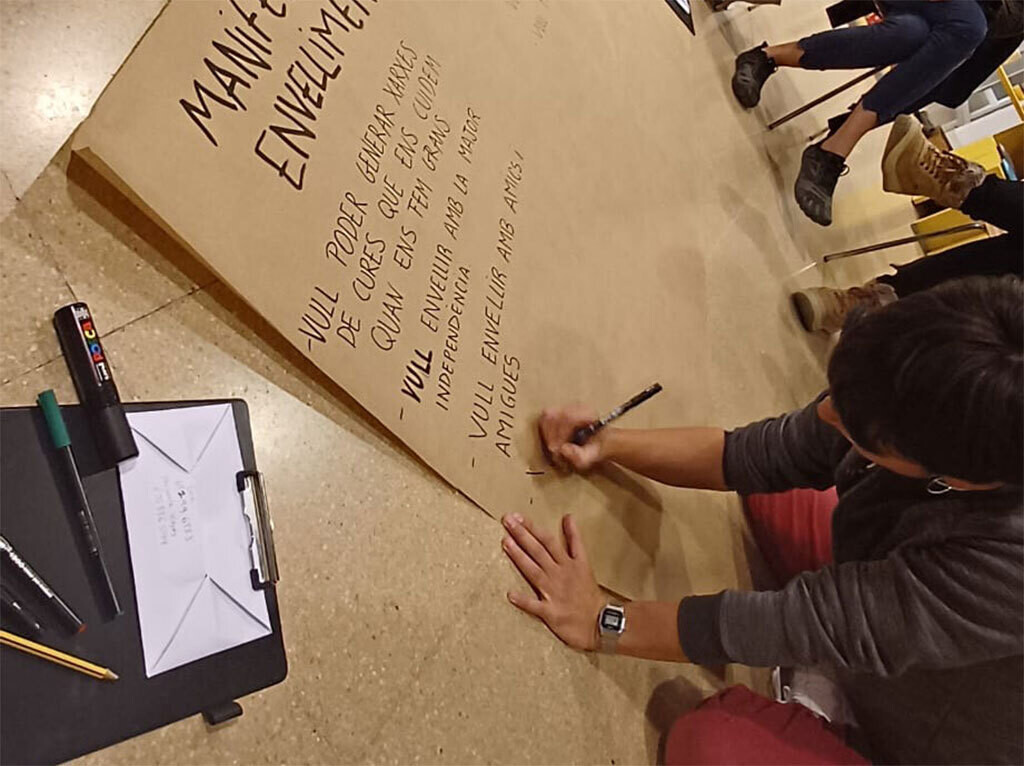 MANIF
ENVELLIMEN
-VULL PODER GENERAR XARXES
DE CURES QUE ENS CUIDEM
QUAN ENS FEM GRANS
- VULL ENVELLIR AMB LA MAJOR
INDEPENDENCIA
- VULL ENVELLIR AMB AMICS I
AMIGUES
POSCA